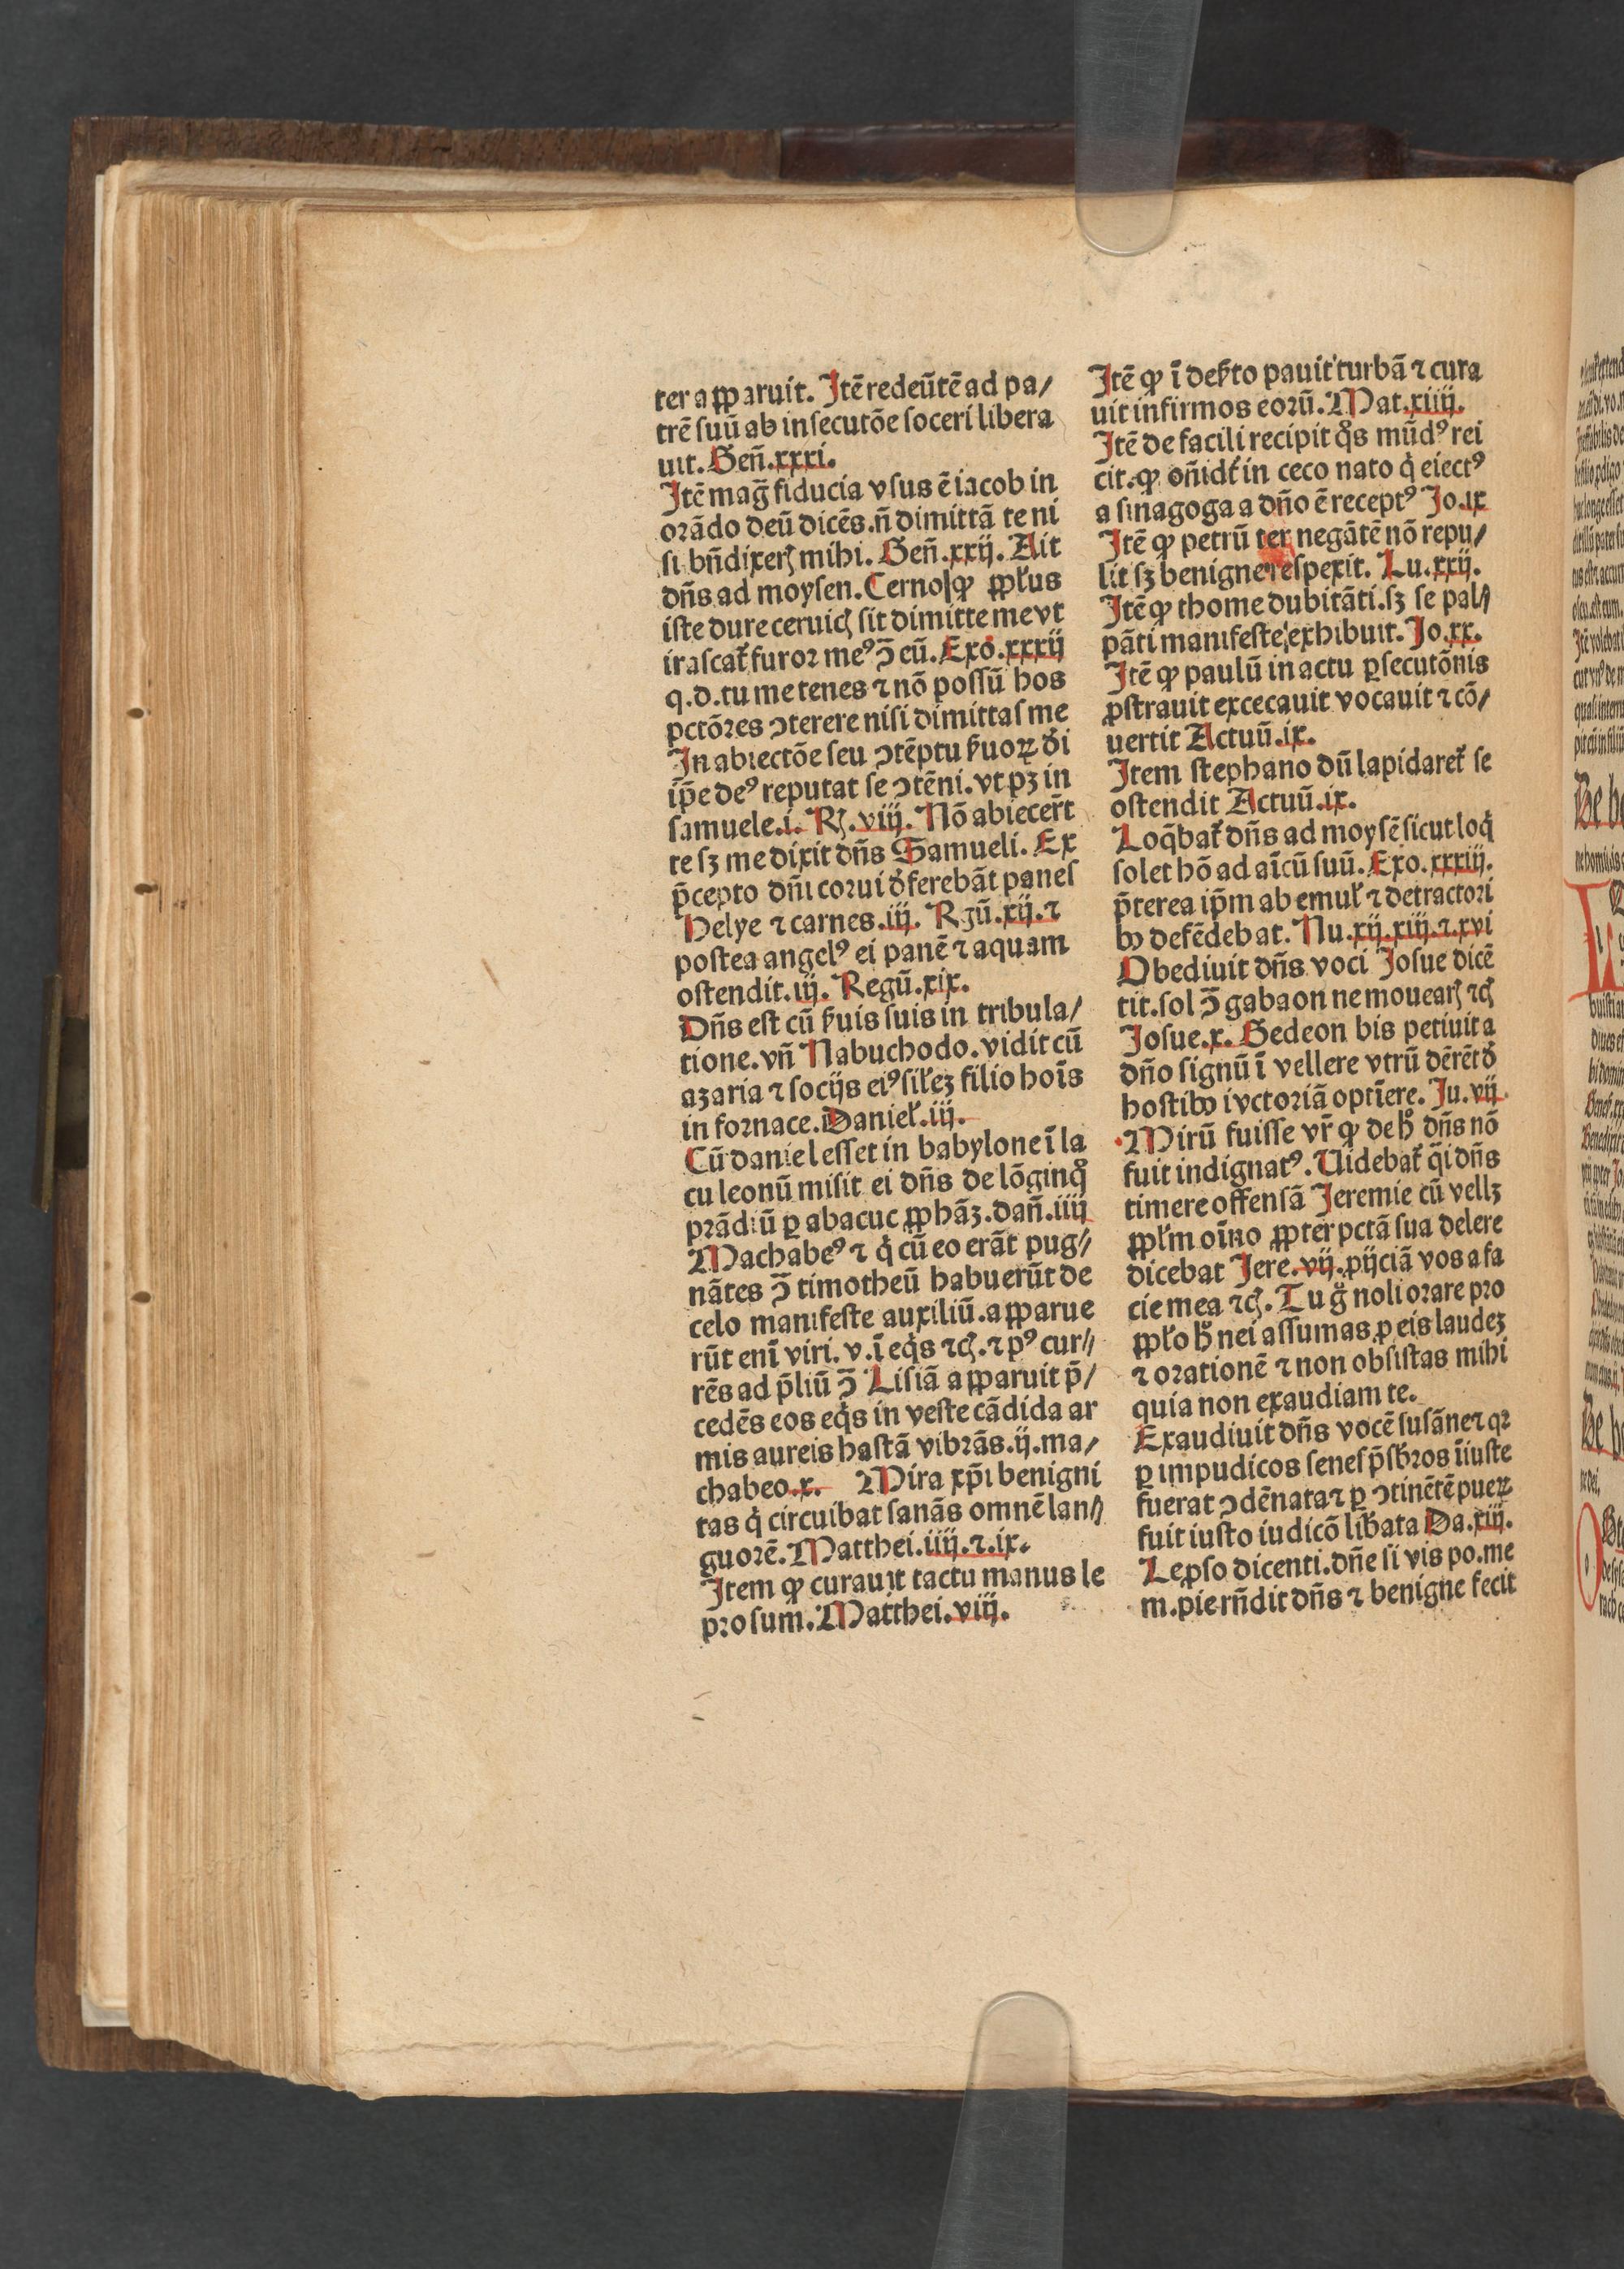 ter apparuit. Itē redeūtē ad pa/
trē suū ab insecutōe soceri libera
uit. Geñ.xxxi.
Itē mag̃ fiducia vsus ē iacob in
orādo deū dicēs.ñ dimittā te ni
si bñdixerꝭ mihi. Geñ.xxij. Ait
dñs ad moysen. Cerno ꝙ ppl̓us
iste dure ceruicꝭ sit dimitte me vt
irascat̉ furor meꝰ ↄ̄ eū. Exo.xxxij
q.d.tu me tenes ⁊ nō possū hos
pctōres ↄterere nisi dimittas me
In abiectōe seu ↄtēptu ẜuoꝝ di
ip̄e deꝰ reputat se ↄtēni.vt pꝫ in
samuele.i. Rꝭ.viij. Nō abiecer̄t
te sꝫ me dixit dñs Samueli. Ex
p̄cepto dñi corui d̉ferebāt panes
Helye ⁊ carnes.iij. Rgū.xij.⁊
postea angelꝰ ei panē ⁊ aquam
ostendit.iij. Regū.xix.
Dñs est cū ẜuis suis in tribula/
tione.vñ Nabuchodo.vidit cū
azaria ⁊ socijs eiꝰ sil̓eꝫ filio hoīs
in fornace.Daniel̓.iij.
Cū daniel esset in babylone ī la
cu leonū misit ei dñs de lōginqͦ
prādiū ꝑ abacuc ꝓphāꝫ.dañ.iiij
Machabeꝰ ⁊ q̇ cū eo erāt pug//
nātes ↄ̄ timotheū habuerūt de
celo manifeste auxiliū.apparue
rūt enī viri.v.ī eq̇s ⁊cꝭ.⁊ pꝰ cur//
rēs ad p̄liū ↄ̄ Lisiā apparuit p̄/
cedēs eos eq̇s in veste cādida ar
mis aureis hastā vibrās.ij.ma/
chabeo.x. Mira xp̄i benigni
tas q̇ circuibat sanās omnē lan//
guorē.Matthei.iiij.⁊.ix.
Item ꝙ curauit tactu manus le
prosum.Matthei.viij.
Itē ꝙ ī deẜto pauit turbā ⁊ cura
uit infirmos eorū.Mat.xiiij.
Itē de facili recipit qͦs mūdꝰ rei
cit.ꝙ oñidt̉ in ceco nato q̇ eiectꝰ
a sinagoga a dño ē receptꝰ Jo.ix
Itē ꝙ petrū ter negātē nō repu/
lit sꝫ benigne respexit. Lu.xxij.
Itē ꝙ thome dubitāti.sꝫ se pal//
pāti manifeste exhibuit.Jo.xx.
Itē ꝙ paulū in actu ꝑsecutōnis
ꝓstrauit excecauit vocauit ⁊ cō/
uertit Actuū.ix.
Item stephano dū lapidaret̉ se
ostendit Actuū.ix.
Loq̄bat̉ dñs ad moysē sicut loq̇
solet hō ad aīcū suū.Exo.xxxiij.
p̄terea ip̄m ab emul̓ ⁊ detractori
bꝰ defēdebat.Nu.xij.xiij.⁊.xvi
Obediuit dñs voci Josue dicē
tit.sol ↄ̄ gabaon ne mouearꝭ ⁊cꝭ
Josue.x. Gedeon bis petiuit a
dño signū ī vellere vtrū dērēt d̉
hostibꝰ ivctoriā optīere.Ju.vij.
Mirū fuisse vr̄ ꝙ de hͦ dñs nō
fuit indignatꝰ.Uidebat̉ q̄i dñs
timere offensā Jeremie cū vellꝫ
ppl̓m oīno ꝓpter pctā sua delere
dicebat Jere.vij.ꝓijciā vos a fa
cie mea ⁊cꝭ. Tu gͦ noli orare pro
ppl̓o hͦ nei assumas ꝓ eis laudeꝫ
⁊ orationē ⁊ non obsistas mihi
quia non exaudiam te.
Exaudiuit dñs vocē susāne ⁊ qꝛ
ꝑ impudicos senes p̄sb̓ros īiuste
fuerat ↄdēnata ⁊ ꝑ ↄtinētē pueꝝ
fuit iusto iudicō lib̓ata Da.xiij.
Leꝓso dicenti.dñe si vis po.me
m.pie rñdit dñs ⁊ benigne fecit